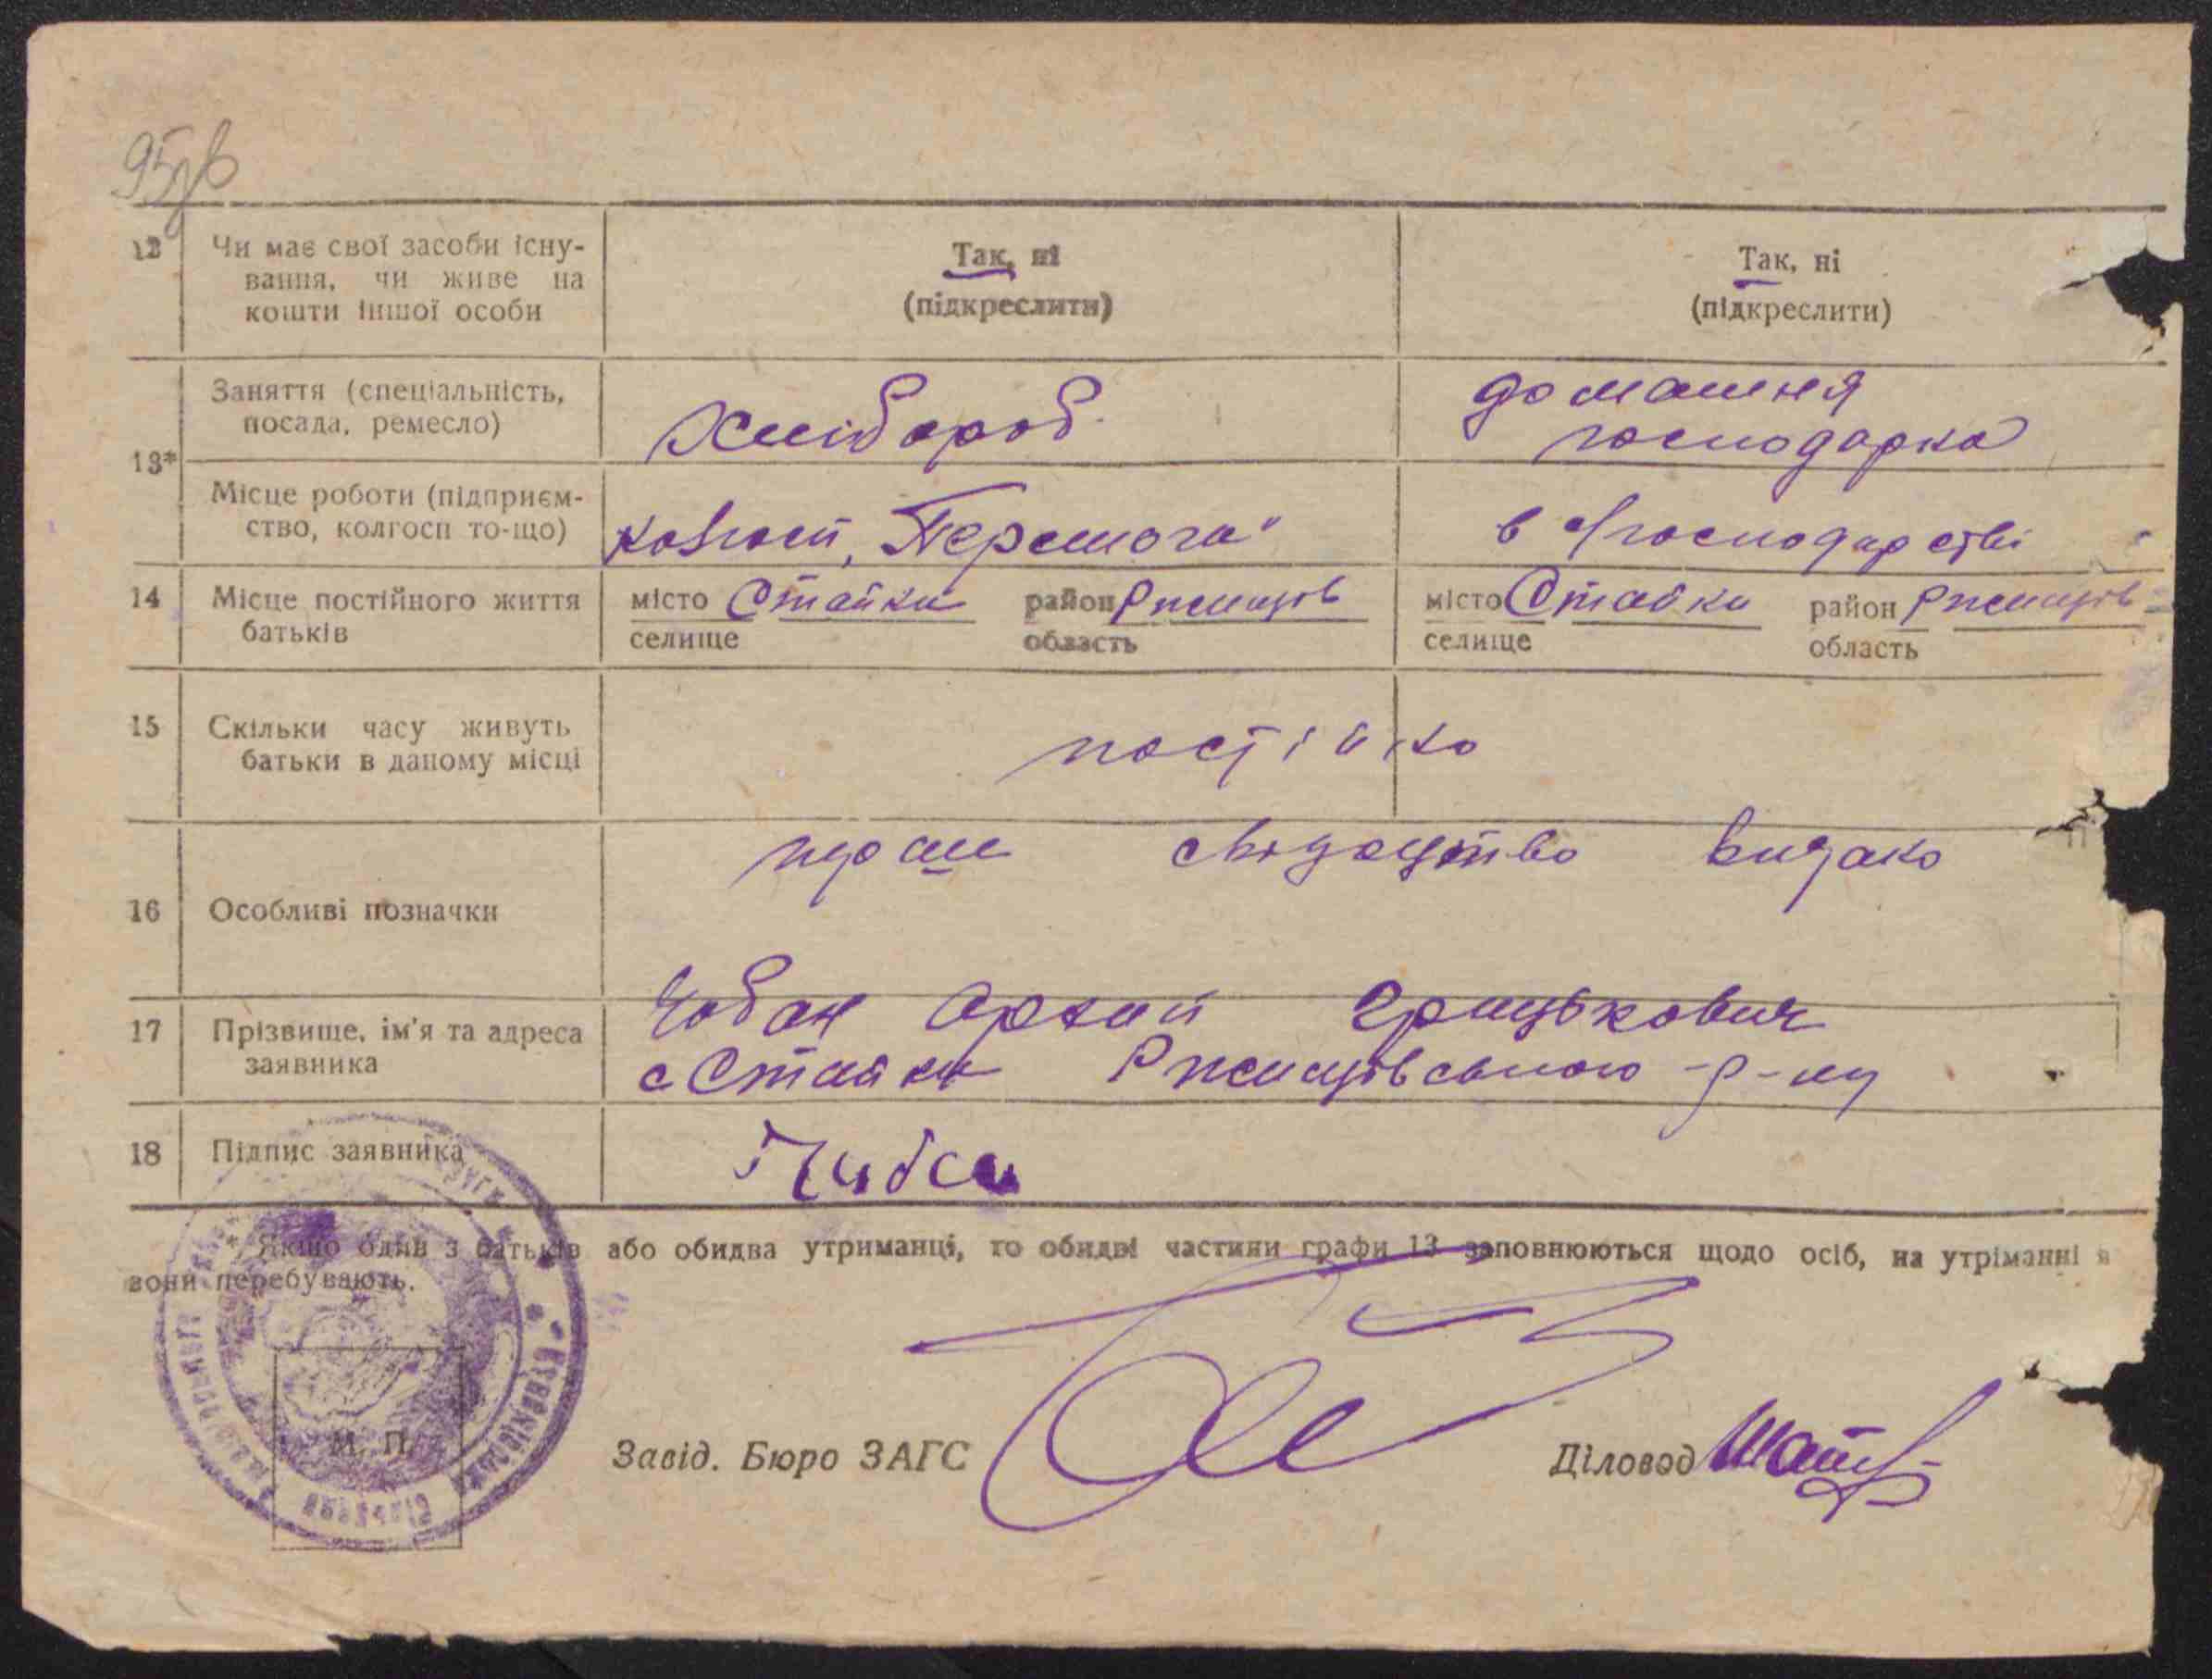 95зв
12 Чи має свої засоби існу-
вання, чи живе на
кошти іншої особи
Так, ні
(підкреслити)
Так, ні
(підкреслити)
13*
Заняття (спеціальність,
посада, ремесло)
Хлібороб.
домашня
господарка
Місце роботи (підприєм-
ство, колгосп то-що)
„Перемога"
в господарстві
14 Місце постійного життя
батьків
місто Стайки район Ржищів
селище область
місто Стайки район Ржищів
селище область
15 Скільки часу живуть
батьки в даному місці
постійно
16 Особливі позначки
свідоцтво видано
17 Прізвище, ім'я та адреса
заявника
Чобан Грицькович
с Стайки Ржищівського р-ну
18 Підпис заявника
* Якщо один з батьків або обидва утриманці, то обидві частини графи 13 заповнюються щодо осіб, на утріманні
вони перебувають.
М. П.
Завід. Бюро ЗАГС
Діловод